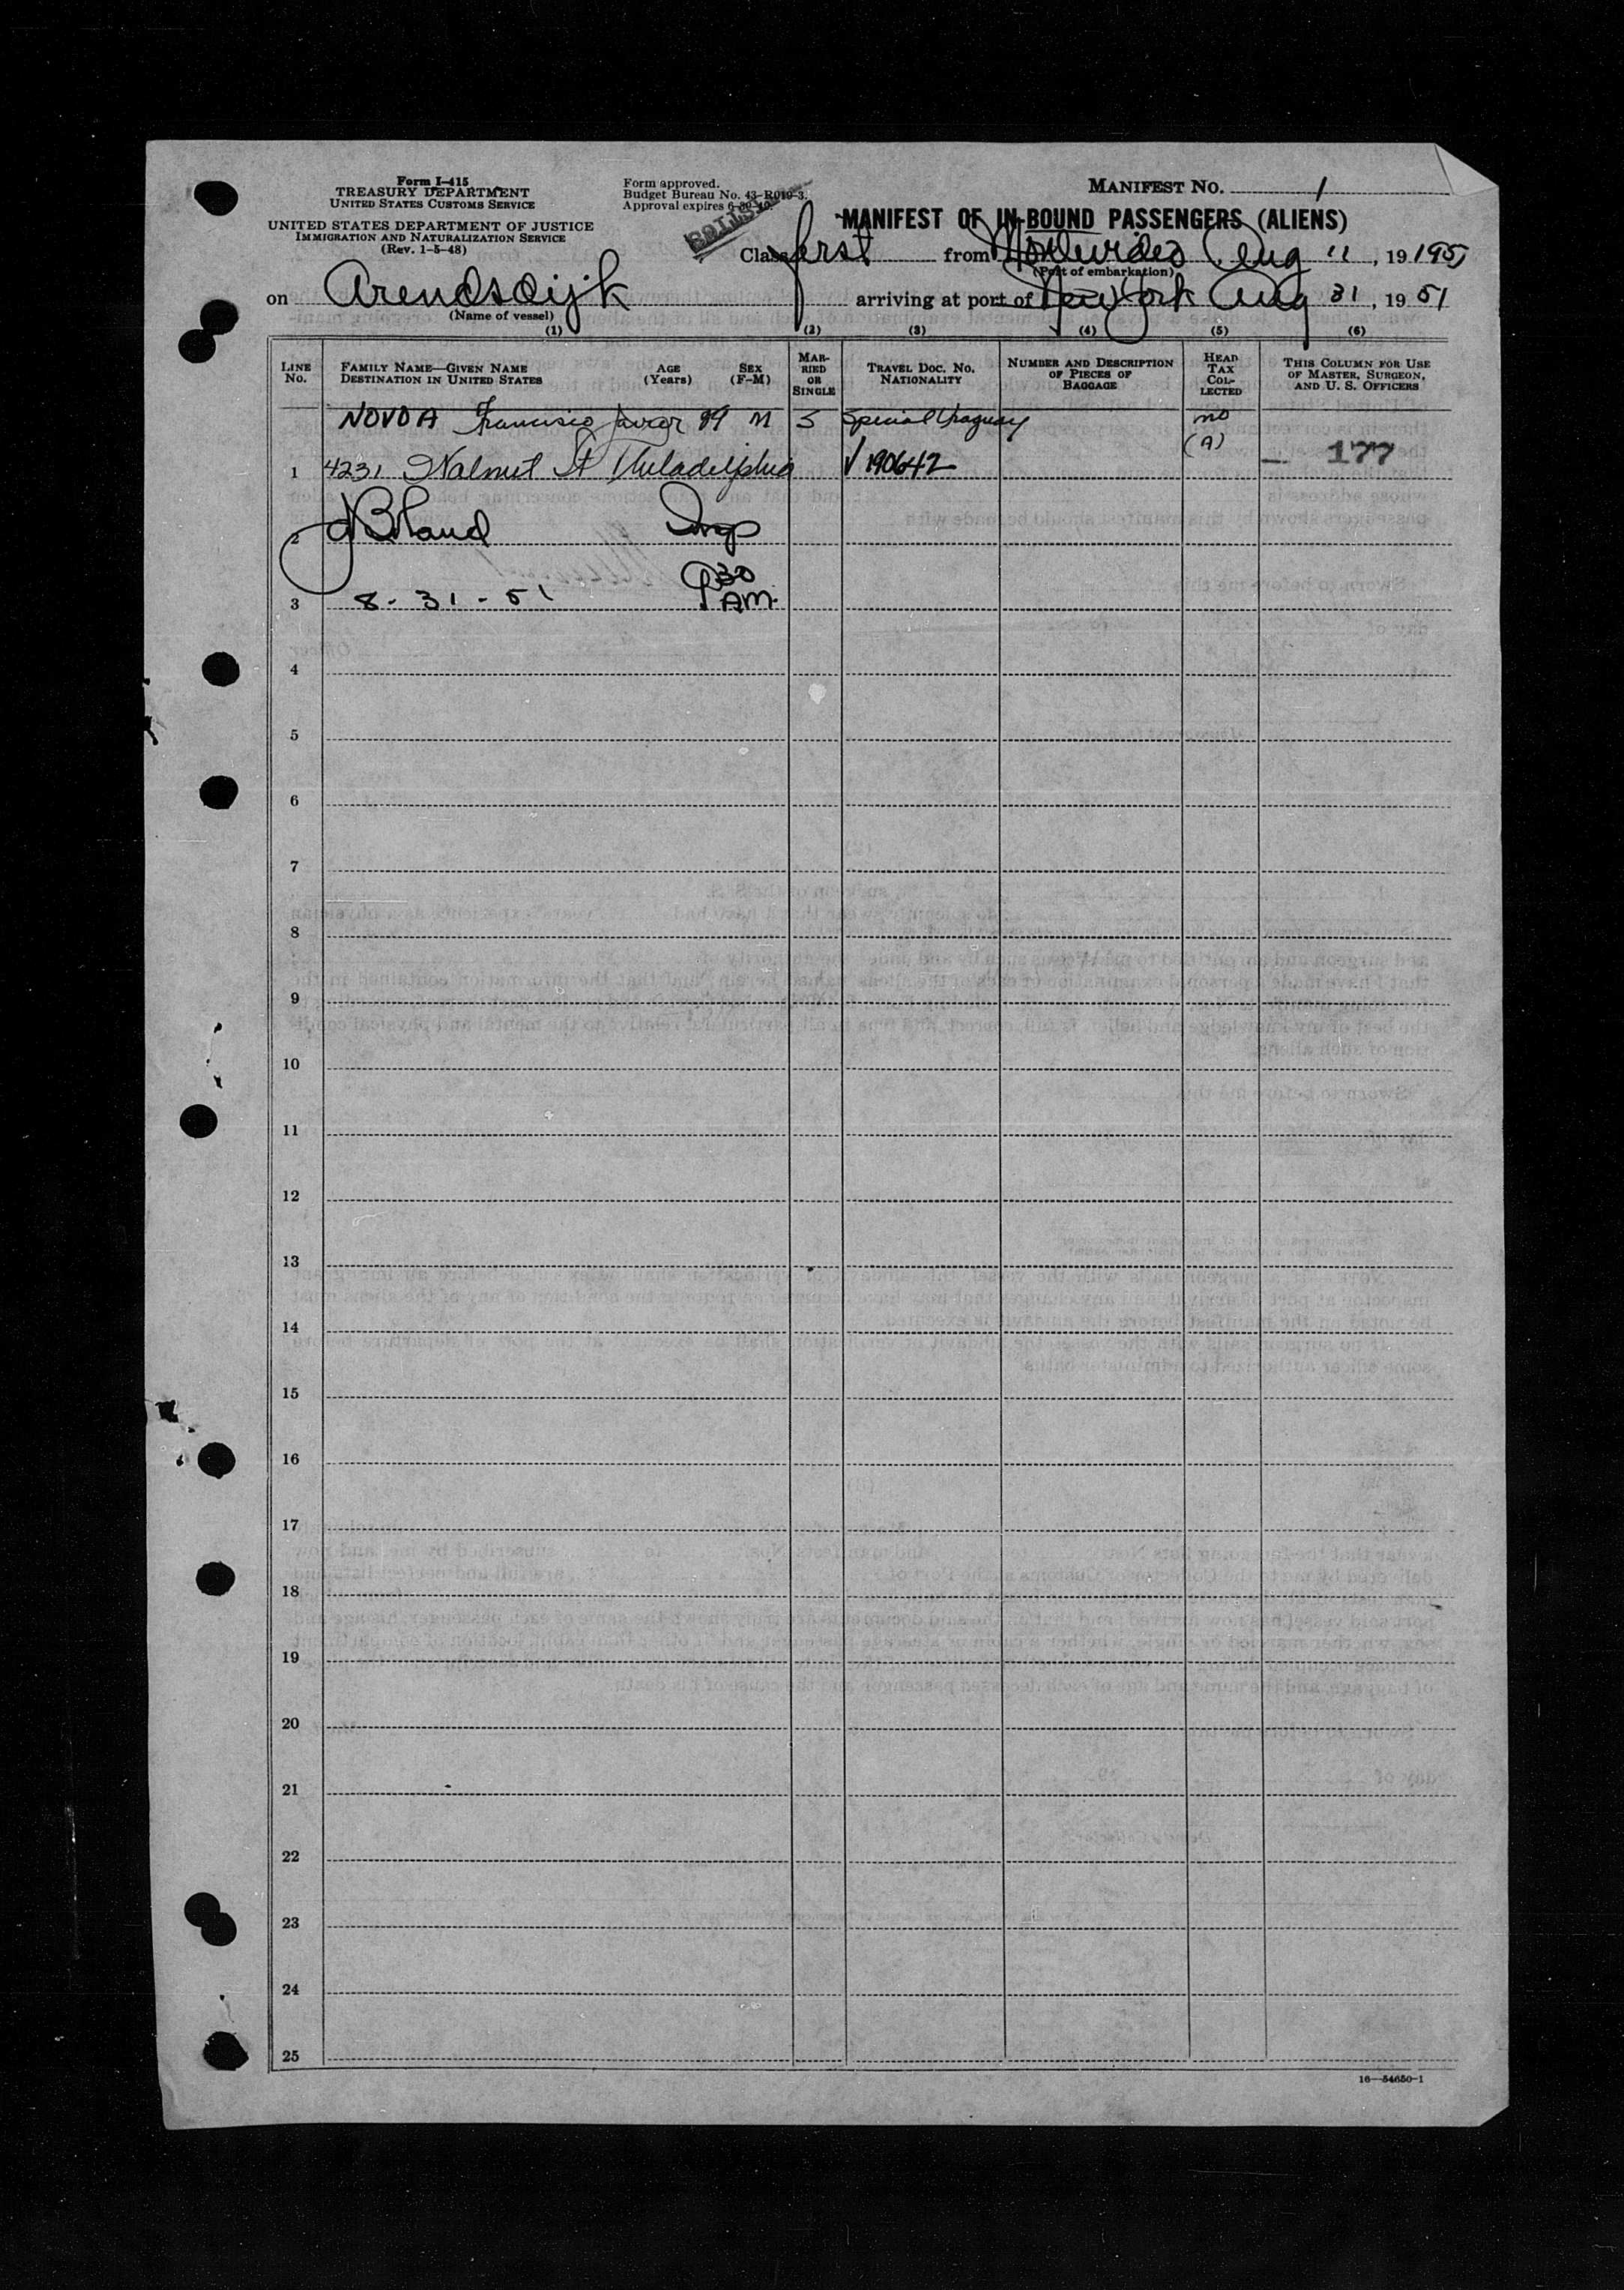 Form I-415
TREASURY DEPARTMENT
UNITED STATES CUSTOMS SERVICE
UNITED STATES DEPARTMENT OF JUSTICE
IMMIGRATION AND NATURALIZATION SERVICE
(Rev. 1-5-48)
Form approved.
Budget Bureau No. 43-R019-3.
Approval expires
MANIFEST NO. 1
MANIFEST OF IN-BOUND PASSENGERS (ALIENS)
Class first from Montevideo Aug 11, 19 1951
(Port of embarkation)
on Arendsdijk arriving at port of New York Aug 31, 19 51
(Name of vessel)
(1) (2) (3) (4) (5) (6)
LINE No.
FAMILY NAME—GIVEN NAME
DESTINATION IN UNITED STATES
AGE (Years)
SEX (F-M)
MARRIED OR SINGLE
TRAVEL DOC. NO.
NATIONALITY
NUMBER AND DESCRIPTION OF PIECES OF BAGGAGE
HEAD TAX COLLECTED
THIS COLUMN FOR USE OF MASTER, SURGEON, AND U. S. OFFICERS
NOVOA Francisco M S Special Uruguay no
(A)
1 4231 Walnut St Philadelphia V 190642 — 177
2 Insp
3 8-31-51 930 AM
4
5
6
7
8
9
10
11
12
13
14
15
16
17
18
19
20
21
22
23
24
25
16—54650-1